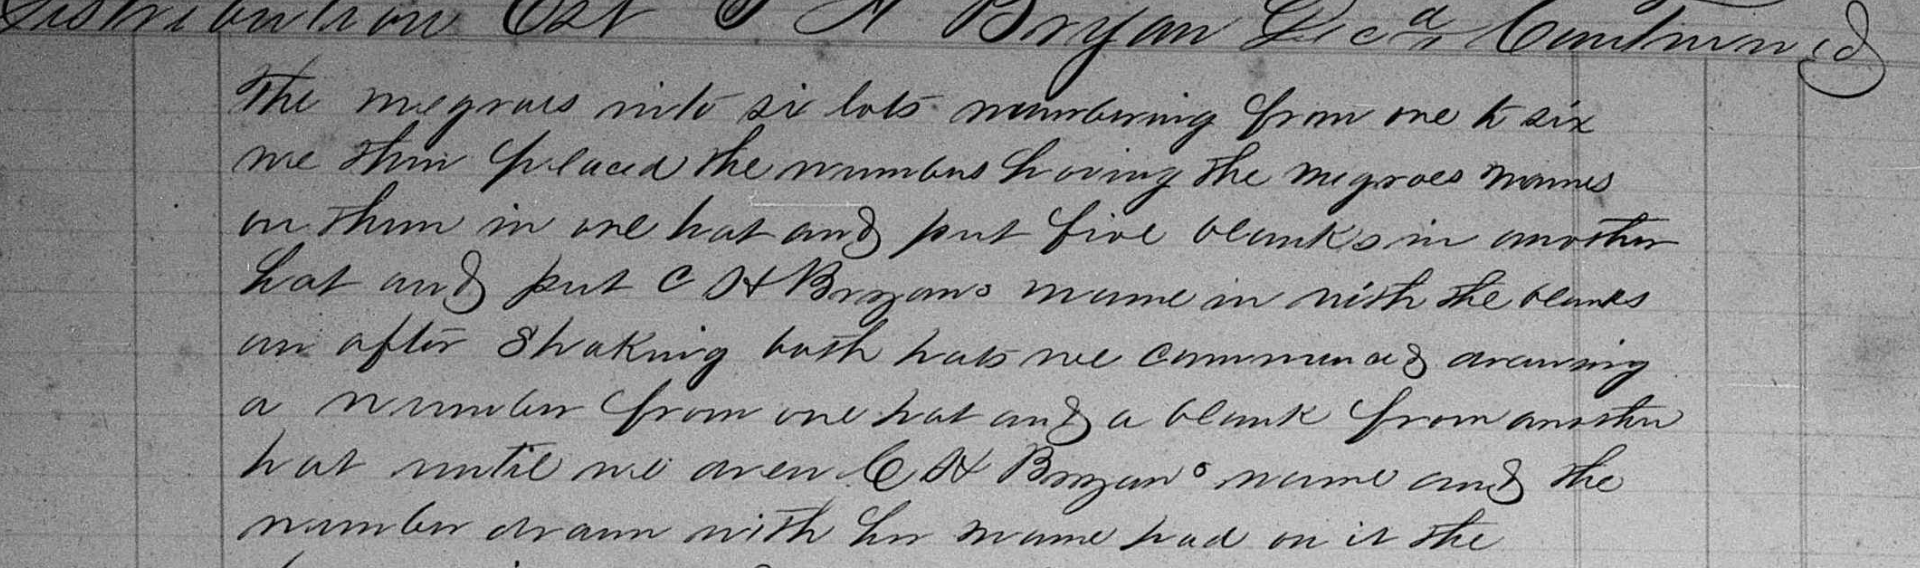 Distribution Est J H Bryan Decd Continued
The negroes into six lots numbering from one to six
we then placed the numbers having the negroes names
on them in one hat and put five blanks in another
hat and put C H Bryans name in with the blanks
an after Shaking both hats we commenced drawing
a number from one hat and a blank from another
hat until we drew C H Bryans name and the
number drawn with her name had on it the